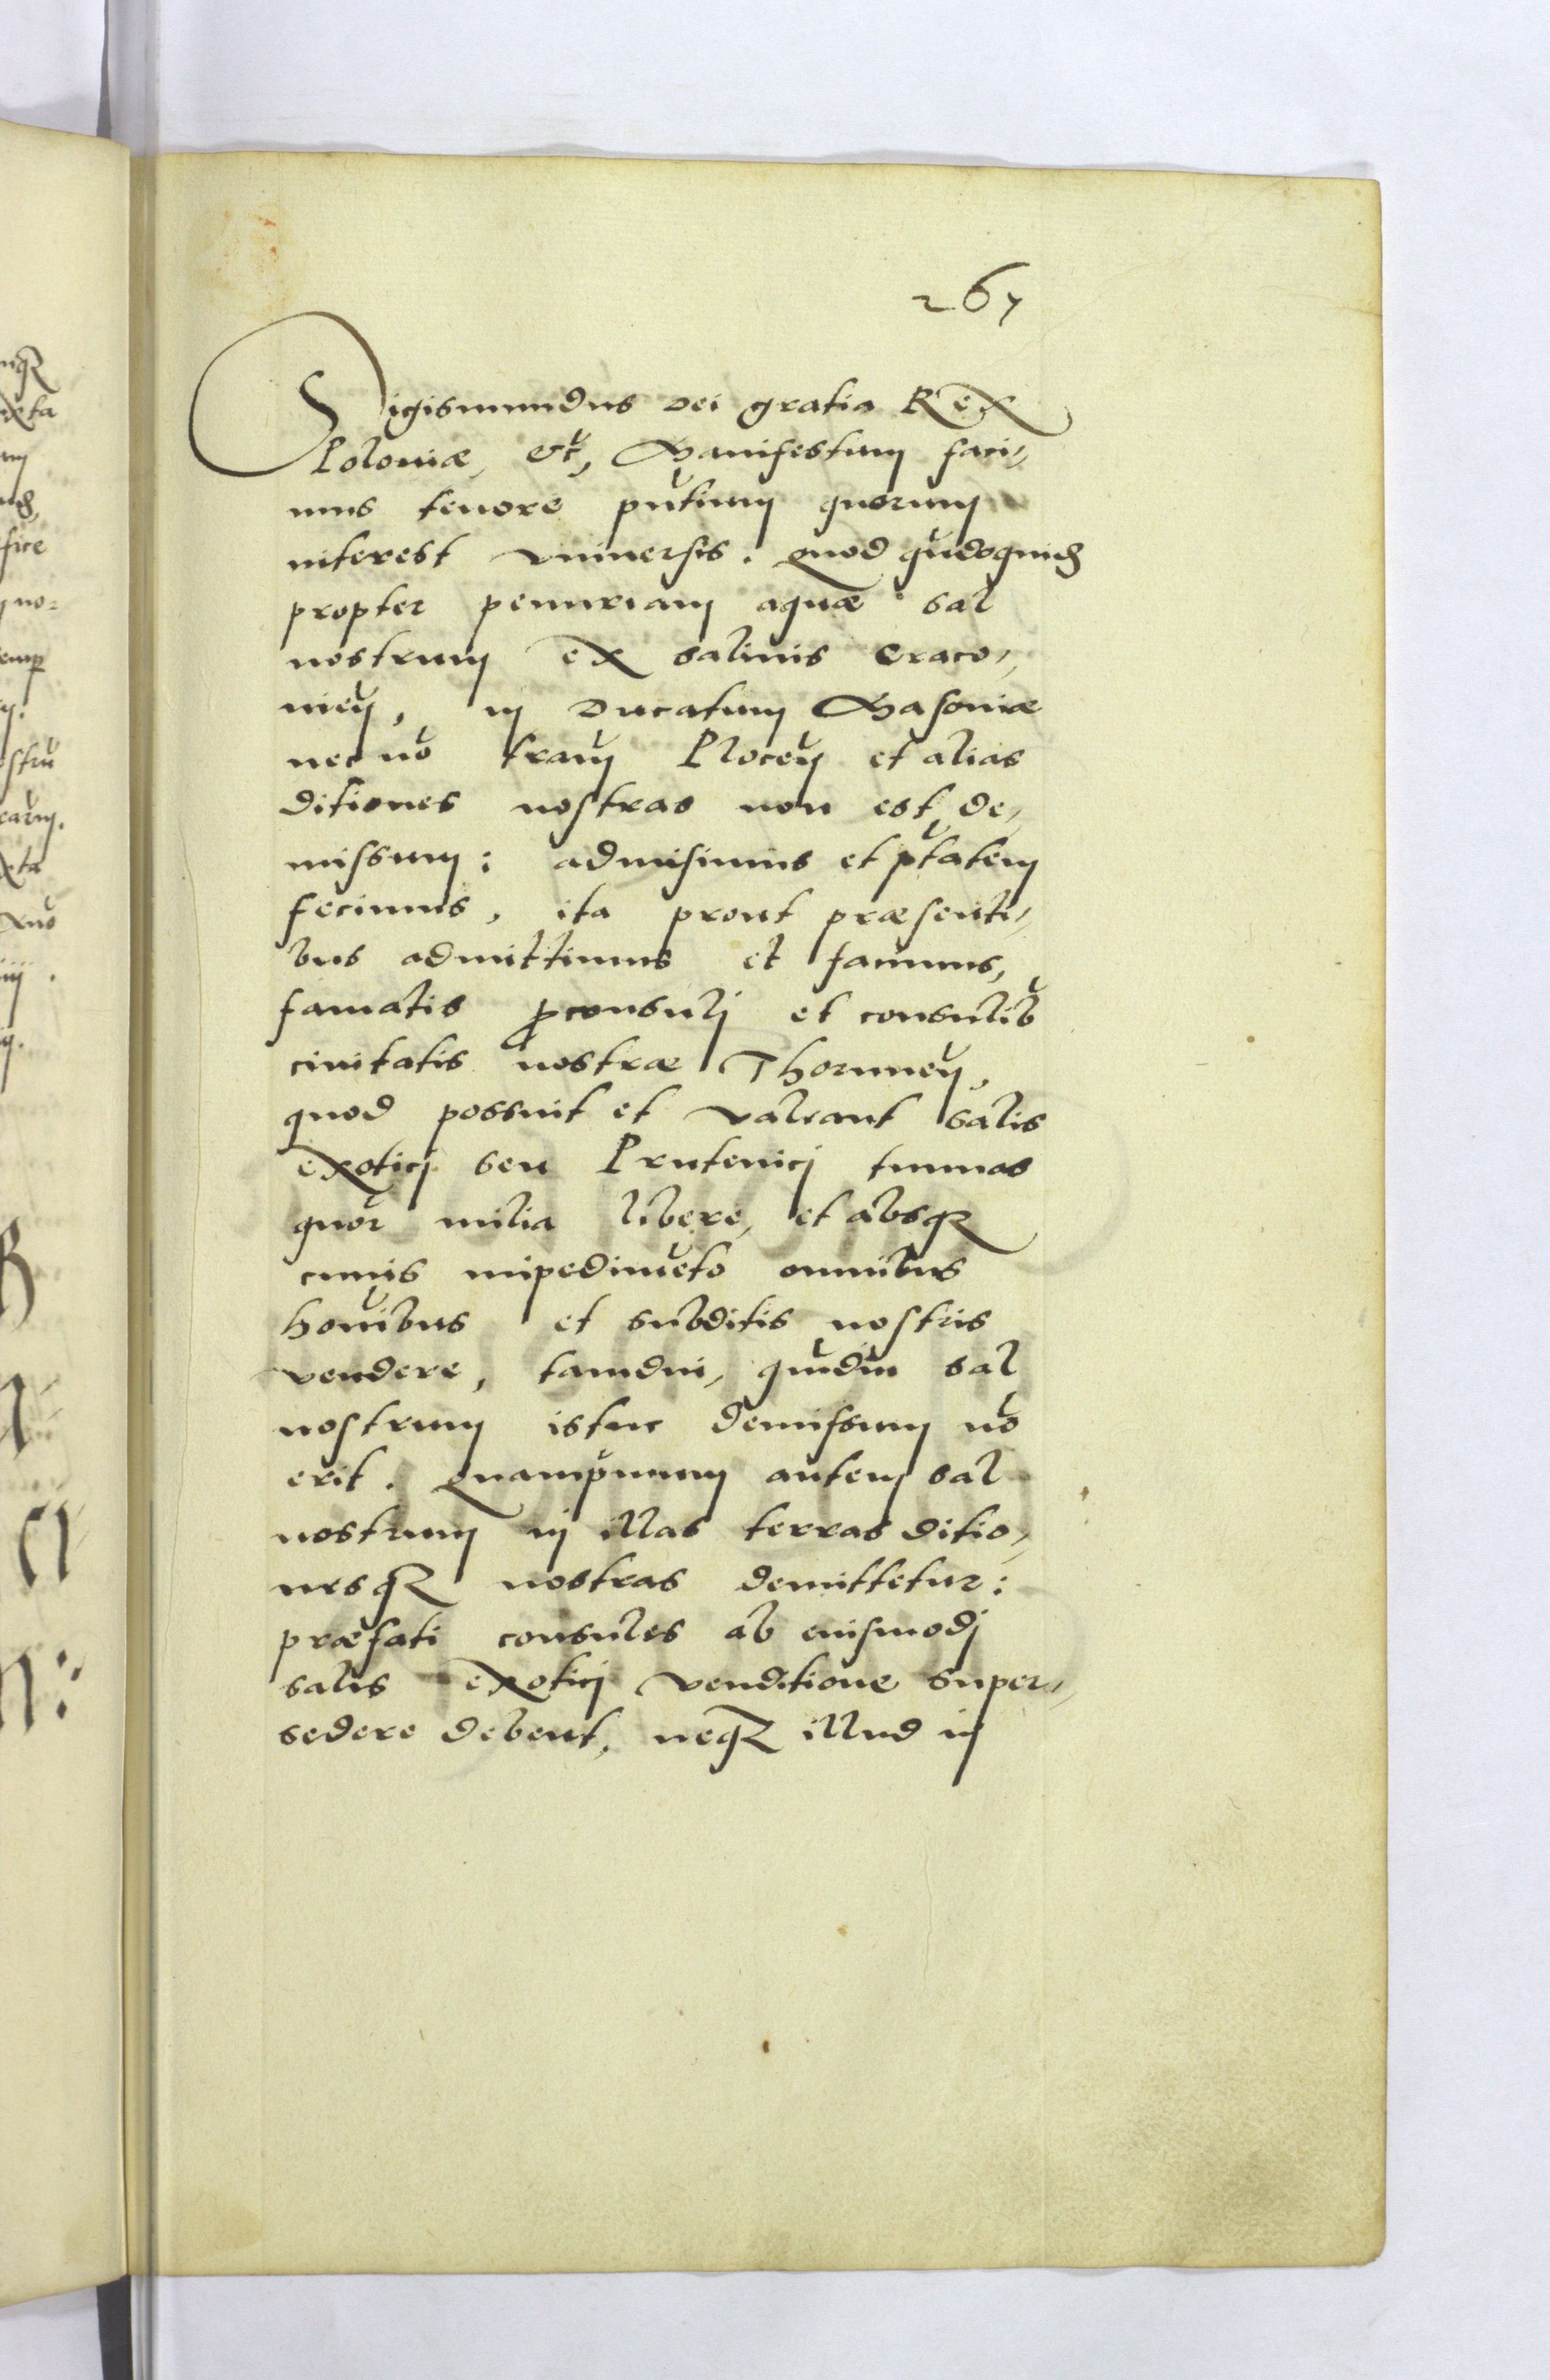 267
Sigismundus dei gratia Rex
Poloniæ, etc̃, Manifestum faci,,
mus tenore pñtium quorum
interest vniuersis. Quod qũdoquid
propter penuriam aquæ sal
nostrum ex salinis Craco,,
nien, in Ducatum Masoniæ
nec nõ tram̃ Plocen̄ et alias
ditiones nostras non est de,,
missum: admisimus et ptãtem
fecimus, ita prout præsenti,,
bus admittimus et facimus,
famatis ꝓconsuli et consulib̃
ciuitatis nostræ Thorunen̄,
quod possint et valeant salis
exotici seu Prutenici tunnas
quor milia libere, et absqꝫ
cuiuis impedimẽto omnibus
hoĩibus et subditis nostris
vendere, tamdiu, qũdiu sal
nostrum istuc demissum nõ
erit. Quampũmum autem sal
nostrum in illas terras ditio,,
nesqꝫ nostras demittetur:
præfati consules ab eiusmodi
salis exotici venditione super,,
sedere debent, neqꝫ illud in